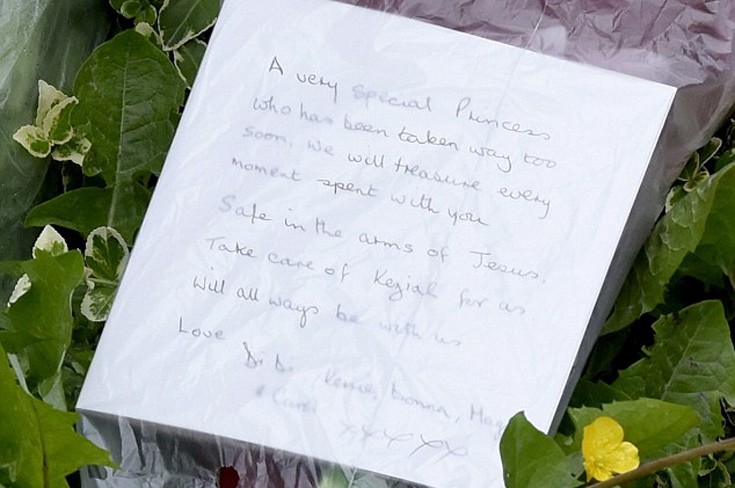 A very special Princess
who has been taken way too
soon. We will treasure every
moment spent with you
Safe in the arms of Jesus.
Take care of Keziah for us
Will all ways be with us
Love
Donna,
& 
xxxxx